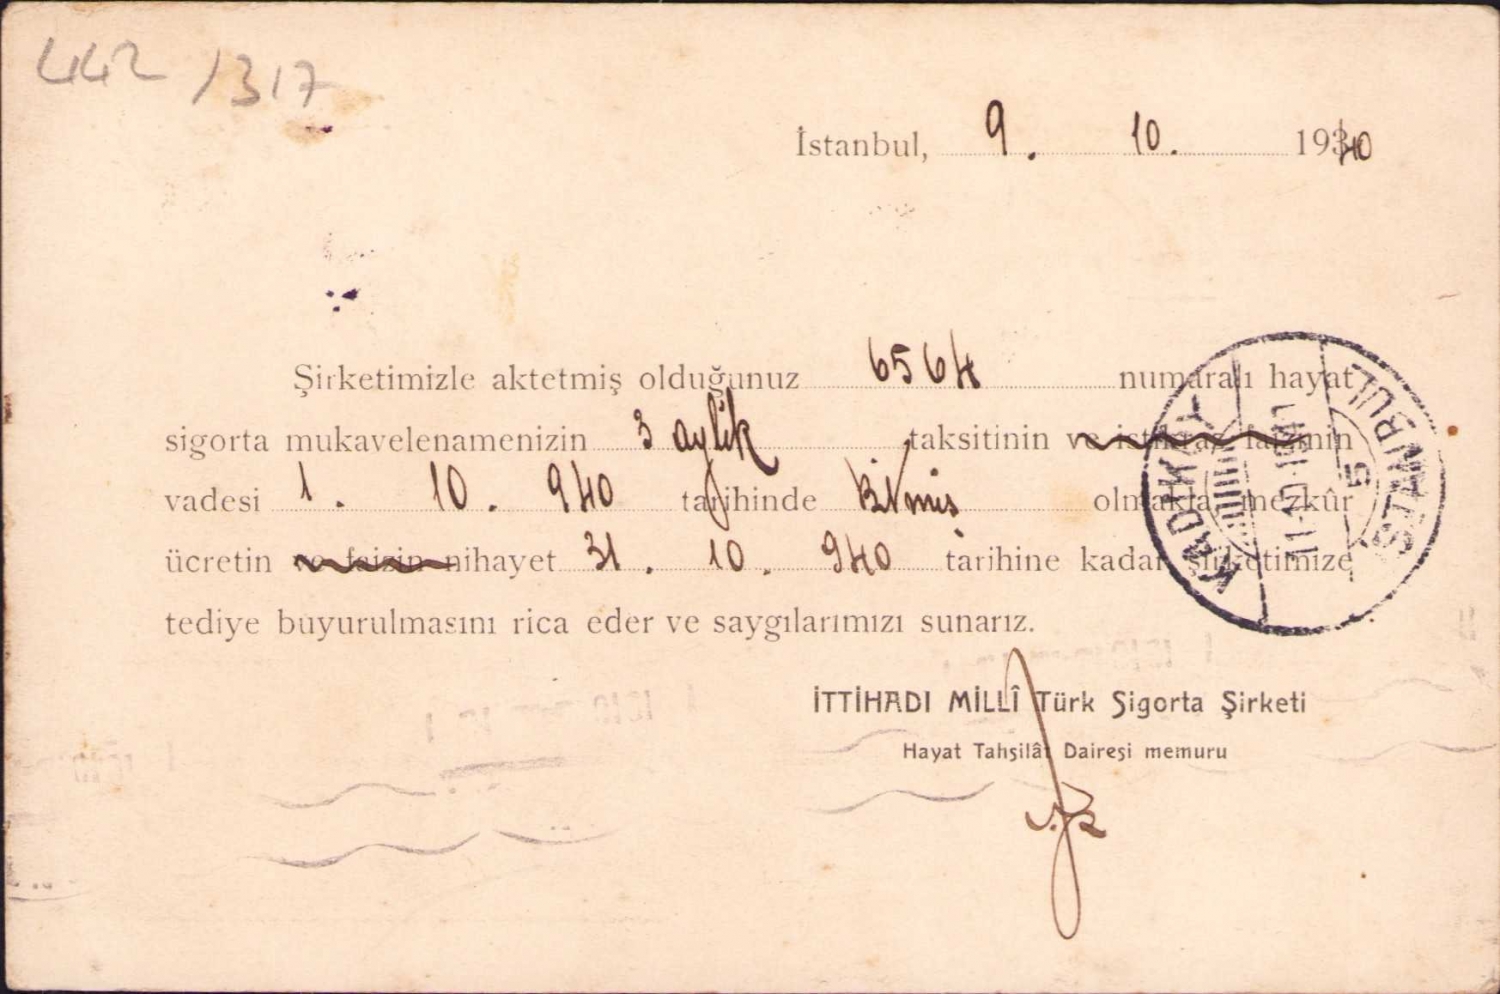 442 /317
İstanbul, 9. 10. 1940
Şirketimizle aktetmiş olduğunuz 6564 numaralı hayat
sigorta mukavelenamenizin 3 aylik taksitinin ve istikraz faizinin
vadesi 1. 10. 940 tarihinde bitmiş olmakla mezkûr
ücretin ve faizin nihayet 31. 10. 940 tarihine kadar şirketimize
tediye buyurulmasını rica eder ve saygılarımızı sunarız.
KADIKÖY
11-10-1941
5
İSTANBUL
İTTİHADI MİLLÎ Türk Sigorta Şirketi
Hayat Tahsilât Dairesi memuru